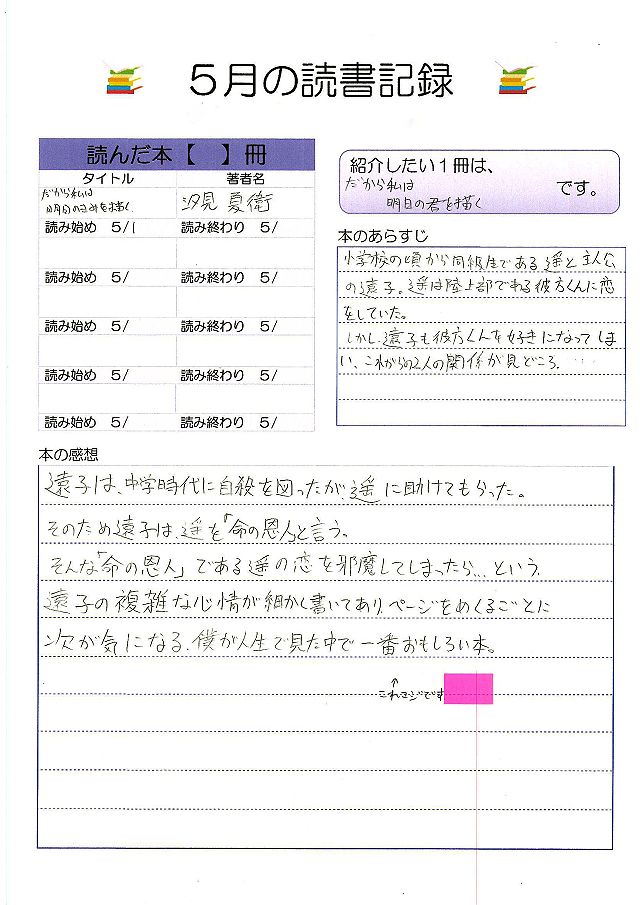 5月の読書記録
読んだ本【 】冊
タイトル 著者名
だから私は
明日のきみを描く
汐見 夏衛
読み始め 5/1 読み終わり 5/
読み始め 5/ 読み終わり 5/
読み始め 5/ 読み終わり 5/
読み始め 5/ 読み終わり 5/
読み始め 5/ 読み終わり 5/
紹介したい1冊は、
だから私は
明日の君を描く
です。
本のあらすじ
小学校の頃から同級生である遥と主人公
の遠子。遥は陸上部である彼方くんに恋
をしていた。
しかし、遠子も彼方くんを好きになってしま
い、これからの2人の関係が見どころ....
本の感想
遠子は、中学時代に自殺を図ったが、遥に助けてもらった。
そのため遠子は、遥を「命の恩人」と言う。
そんな「命の恩人」である遥の恋を邪魔してしまったら...という、
遠子の複雑な心情が細かく書いてありページをめくるごとに
次が気になる、僕が人生で見た中で一番おもしろい本。
↑
これマジです